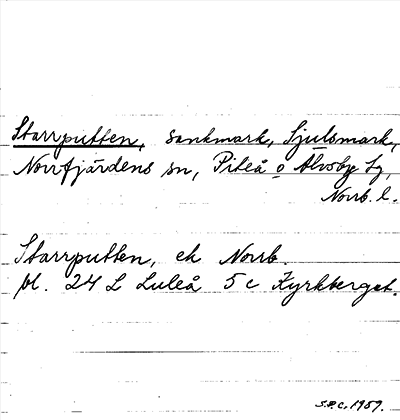 Starrputten, sankmark, Sjulsmark,
Norrfjärdens sn, Piteå o Älvsby tg
Norrb. l.
Starrputten, ek Norrb.
bl. 24 L Luleå 5 c Kyrkberget.
S.P.C. 1959.